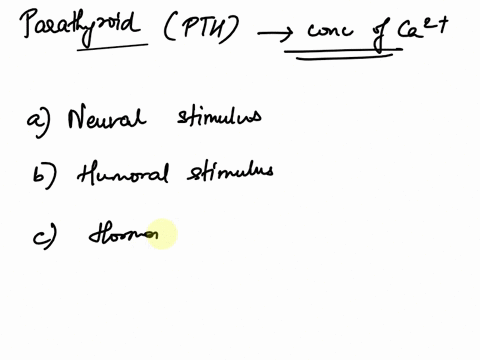 Parathyroid (PTH) → conc of Ca2+
a) Neural stimulus
b) Humoral stimulus
c) Hormon